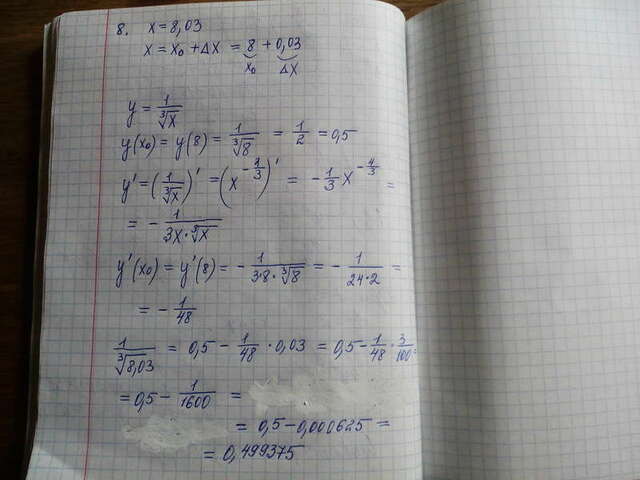 8. x = 8,03
x = x₀ + Δx = 8 + 0,03
x₀ Δx
y = 1/∛x
y(x₀) = y(8) = 1/∛8 = 1/2 = 0,5
y' = (1/∛x)' = (x^(-1/3))' = -1/3 x^(-4/3) =
= - 1/(3x·∛x)
y'(x₀) = y'(8) = - 1/(3·8·∛8) = - 1/(24·2) =
= - 1/48
1/∛8,03 = 0,5 - 1/48 · 0,03 = 0,5 - 1/48 · 3/100 =
= 0,5 - 1/1600 =
= 0,5 - 0,000625 =
= 0,499375